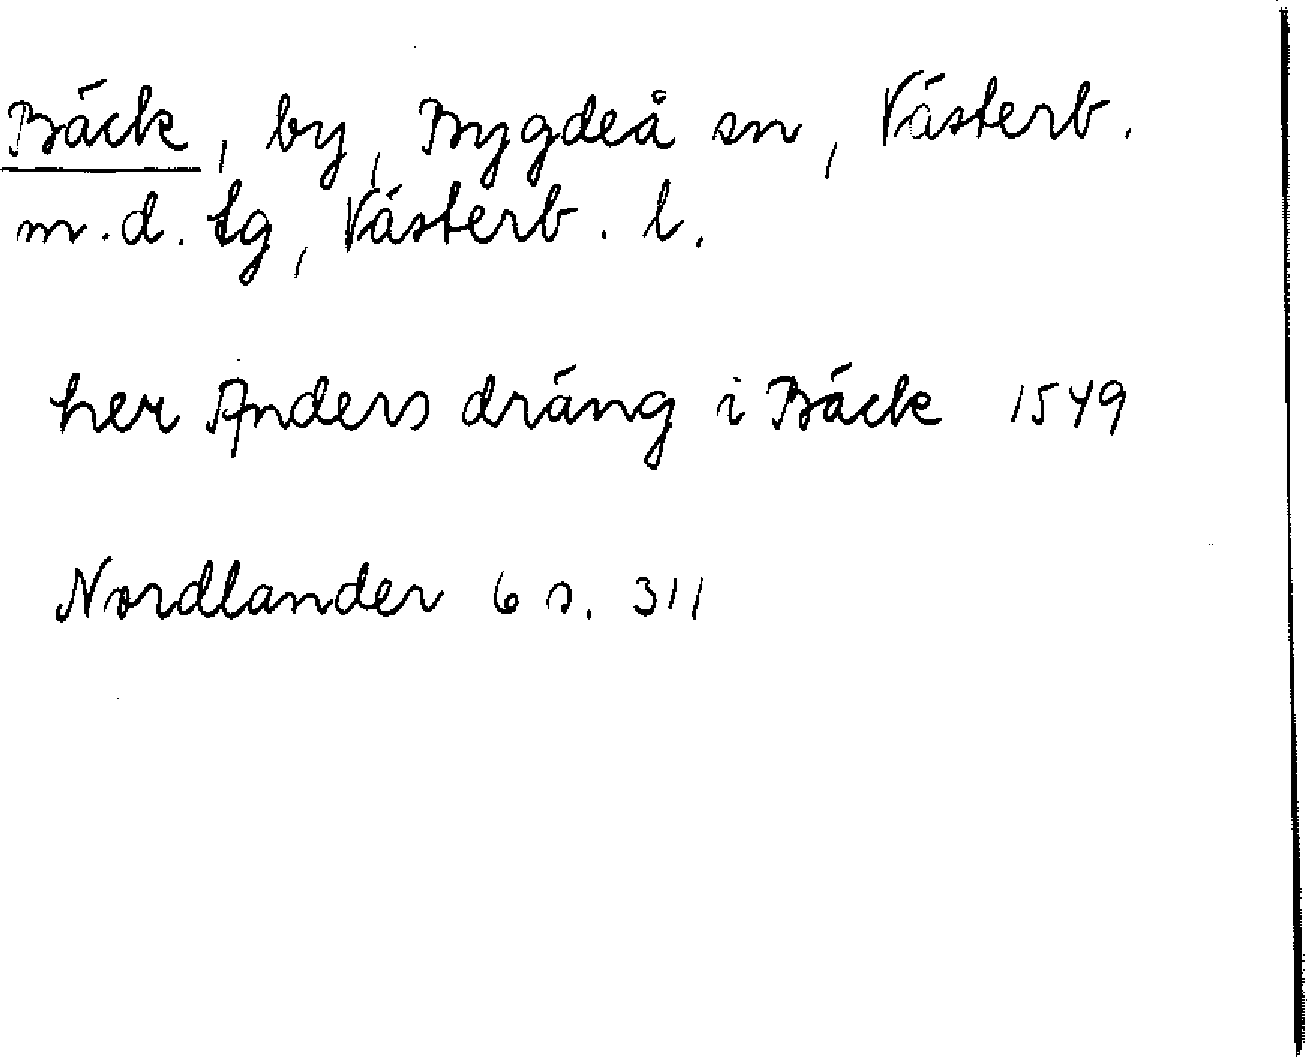 Bäck, by, Bygdeå sn, Västerb.
m.d. tg, Västerb. l.
her Anders dräng i Bäck 1549
Nordlander 6 s. 311